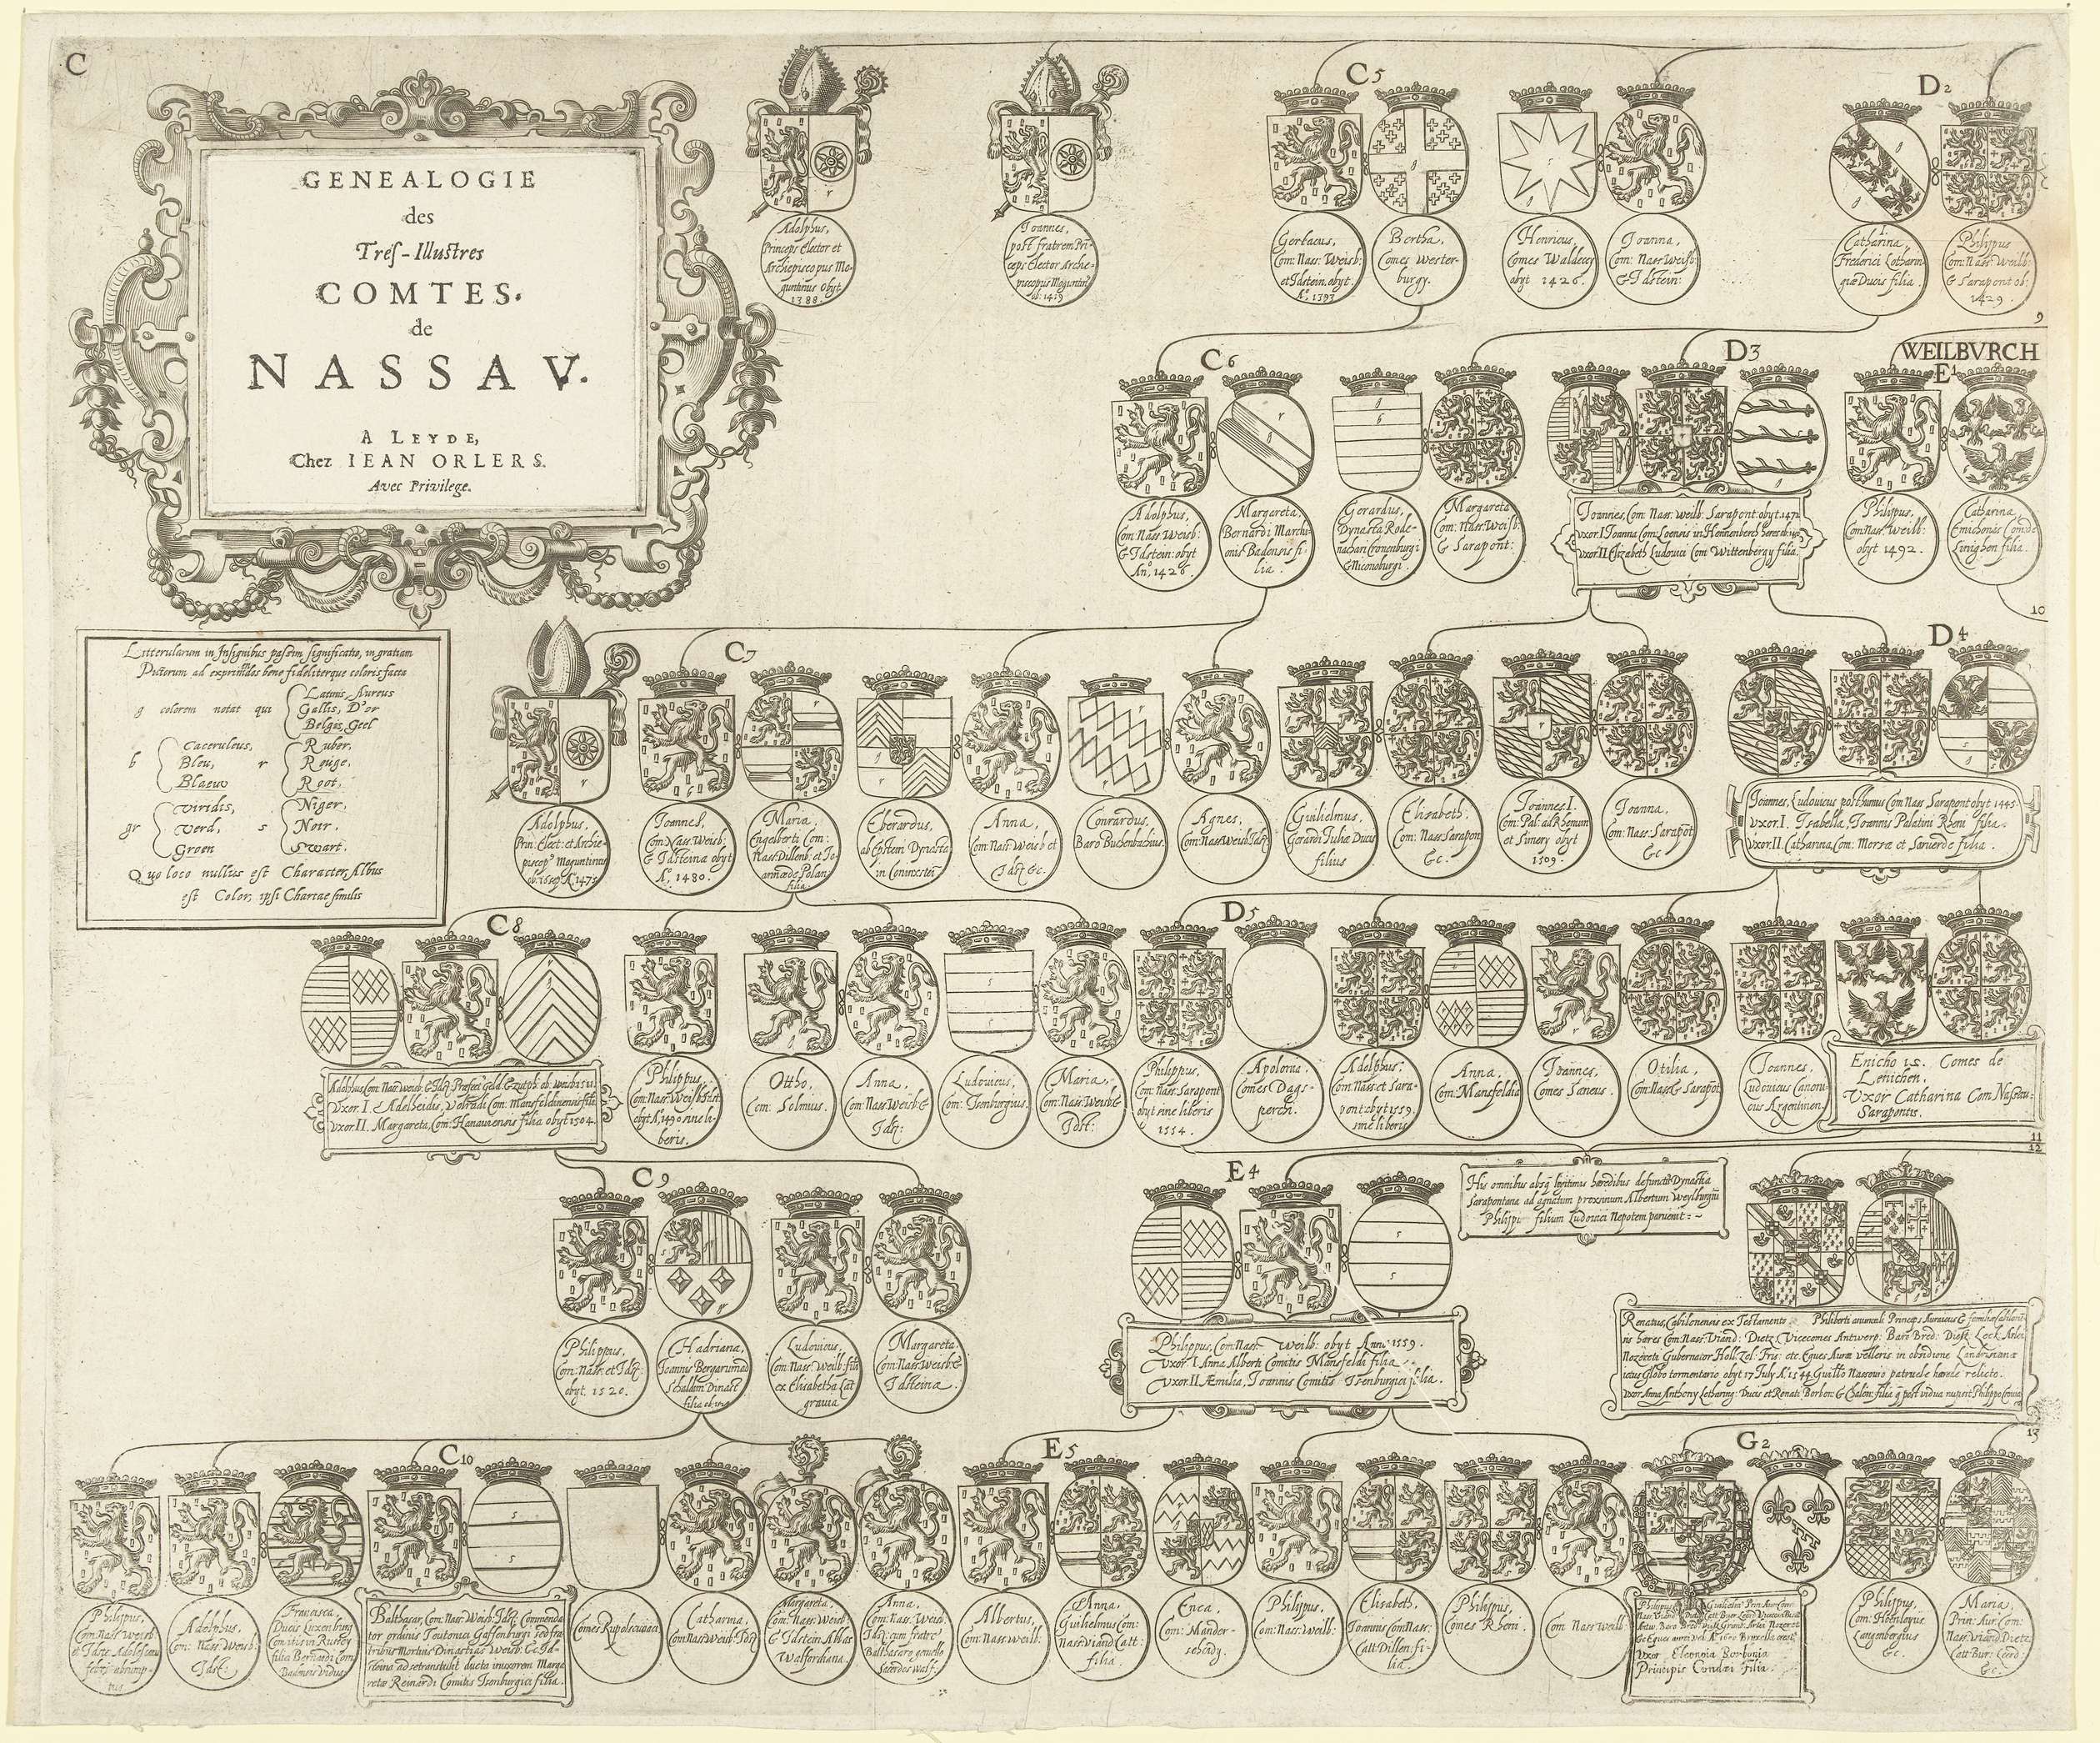 C
GENEALOGIE
des
Tres-Illustres
COMTES.
de
NASSAV.
A LEYDE,
Chez IEAN ORLERS.
Avec Privilege.
Adolphus,
Princeps Elector et
Archiepiscopus Mo-
guntinus Obyt
1388.
Ioannes,
post fratrem Prin-
ceps Elector Archie-
piscopus Mogunti
ob: 1419
C5
Gerlacus,
Com: Nass: Weisb:
et Idstein. obyt.
Aº. 1393
Bertha,
Comes Wester-
burgy.
Henricus,
Comes Waldecq
obyt 1426.
Ioanna,
Com: Nass Weisb:
& Idstein:
D2
Catharina,
Frederici Lotharin-
giæ Ducis filia.
Philippus
Com: Nass: Weilb:
& Sarapont ob:
1429.
9
C6
Adolphus,
Com: Nass. Weisb:
& Idstein: obyt
An. 1426.
Margareta,
Bernardi Marchi-
onis Badensis fi-
lia.
Gerardus,
Dynasta Rode-
nachari Cronenburgi
& Niconoburgi.
Margareta
Com: Nass. Weilb:
& Sarapont:
D3
Ioannes, Com: Nass: Weilb: Sarapont: obyt 1472
vxor. I Ioanna Com: Loensis in Hennenberch heres
vxor. II Elizabeth Ludovici Com Wittenbergy filia.
WEILBVRCH
E1
Philippus,
Com: Nass. Weilb:
obyt 1492.
Catharina,
Emichonis Com: de
Linighen filia.
10
Litterularum in Insignibus passim significatio, in gratiam
Pictorum ad exprimendos bene fideliterque colores facta
g colorem notat qui
Latinis, Aureus
Gallis, D'or
Belgis, Geel
b
Caceruleus,
Bleu,
Blaeuw
r
Ruber,
Rouge,
Root,
gr
Viridis,
Verd,
Groen
s
Niger,
Noir,
Swart.
Quo loco nullus est Character, Albus
est Color, ipsi Chartae similis
C7
Adolphus,
Prin: Elect: et Archie-
piscopus Moguntinus
Ioannes,
Com: Nass. Weisb:
& Idsteina obyt
Aº. 1480.
Maria,
Engelberti Com:
Nass Dillenb: et Io-
annæ de Polan
filia.
Eberardus,
ab Epstein Dynasta
in Coninxstein
Anna,
Com: Nass: Weisb et
Idst &c.
Conrardus,
Baro Buchenbachius.
Agnes,
Com: Nass Weisb Idst
Guilielmus,
Gerardi Iuliæ Ducis
filius
Elisabeth,
Com: Nass: Sarapon
&c.
Ioannes I.
Com: Pal: ad Rhenum
et Simery obyt
1509.
Ioanna,
Com: Nass: Sarapot
&c
D4
Ioannes, Ludovicus posthumus Com Nass Sarapont obyt 1445.
vxor. I. Isabella, Ioannis Palatini Rheni filia.
vxor. II. Catharina, Com: Morsæ et Sarwerde filia.
C8
Adolphus Com: Nass: Weisb: & Idst: Præfect Geld: Zutph: ob: Weisb: 1511.
vxor. I. Adelheidis, Volradi Com: Mansfeldinensis filia
vxor. II. Margareta, Com: Hanauiensis filia obyt 1504.
Philippus,
Com: Nass: Weisb Idst
obyt A. 1490 sine li-
beris.
Ottho,
Com: Solmius.
Anna,
Com: Nass Weisb: &
Idst:
Ludovicus,
Com: Isenburgius.
Maria,
Com: Nass: Weisb: &
Idst:
D5
Philippus,
Com: Nass: Sarapont
obyt sine liberis
1554.
Apolona,
Comes Dags-
perch.
Adolphus,
Com: Nass: et Sara-
pont: obyt 1559.
sine liberis
Anna,
Com: Mansfeldia
Ioannes,
Comes Seneus.
Otilia,
Com: Nass & Sarapot.
Ioannes,
Ludovicus Canoni-
cus Argentinen.
Enicho is. Comes de
Lenichen.
Vxor Catharina Com: Nassau-
Sarapontis.
11
12
C9
Philippus,
Com: Nass: et Idst:
obyt. 1520.
Hadriana,
Ioannis Bergarum ad
Schaldim Dinast
filia
Ludovicus,
Com: Nass: Weilb: filius
ex Elisabetha Lat
gravia
Margareta,
Com: Nass Weisb &
Idsteina.
E4
Philippus, Com: Nass: Weilb: obyt Ann: 1559.
vxor. I. Anna Alberti Comitis Mansfeldi filia.
vxor. II. Æmilia, Ioannis Comitis Isenburgici filia.
His omnibus absq legitimis hæredibus defunctis Dynastia
Sarapontana ad agnatum proximum Albertum Weylburgiū
Philippi filium Ludovici Nepotem pervenit:~
Renatus, Cabilonensis ex Testamento Philiberti avunculi Princeps Auraicus &
heres Com: Nass: Viand: Dietz: Vicecomes Antwerp: Baro Bred: Diest, Leck
Nozereti Gubernator Holl: Zel: Fris: etc. Eques Aurei velleris in obsidione Landrisiana
ictus Globo tormentario, obyt 17 July Aº. 1544 Guillº Nassovio patruele hærede relicto.
vxor Anna, Anthony Lotharing: Ducis et Renati Borbon: filia
13
C10
Philippus,
Com: Nass: Weisb
et Idst: Adolescens
Adolphus,
Com: Nass: Weisb:
Idst:
Francisca,
Ducis Luxenburg
Comitis in Russey
filia Bernardi Com
Badensis Vidua
Balthasar, Com: Nass: Weisb: Idst: Commenda-
tor ordinis Teutonici Gaffenburgi sed fra-
tribus Mortuis Dinastias Weisb: & Id-
steina ad se transtulit ducta in uxorem Marga-
reta Reinardi Comitis Isenburgici filia.
Comes
Catharina,
Com Nass Weisb: Idst
Margareta,
Com: Nass: Weisb
& Idstein Abbas
Walfordiana.
Anna,
Com: Nass. Weisb.
Idst: cum fratre
Balthasaro gemello
E5
Albertus,
Com: Nass: Weilb:
Anna,
Guilhelmus Com:
Nass: Viand Catt:
filia.
Com: Mander-
scheidy.
Philippus,
Com: Nass: Weilb:
Elisabeth,
Ioannis Com Nass:
Catt Dillen: fi-
lia.
Philippus,
Comes Rheni.
Com Nass Weilb
G2
vxor, Eleonora Borbonia
Principis Condæi Filia.
Philippus,
Com: Hoenloyiæ
Langenbergius
&c.
Maria,
Prin: Aur: Com:
Nass: Viand Dietz
Catt Bur: Leerd:
&c.